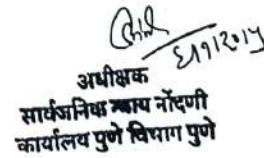 अधीक्षक
सार्वजनिक न्याय नोंदणी
कार्यालय पुणे विभाग पुणे